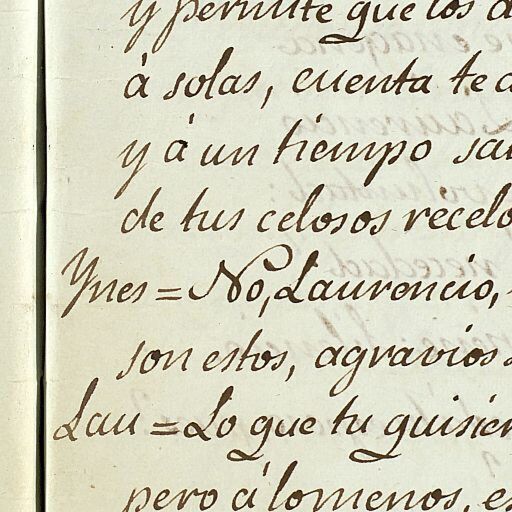 y permite que los
à solas, cuenta te
y à un tiempo
de tus celosos recelo
Ynes = No, Laurencio,
son estos, agravios
Lau = Lo que tu quisier
pero á lo menos, es